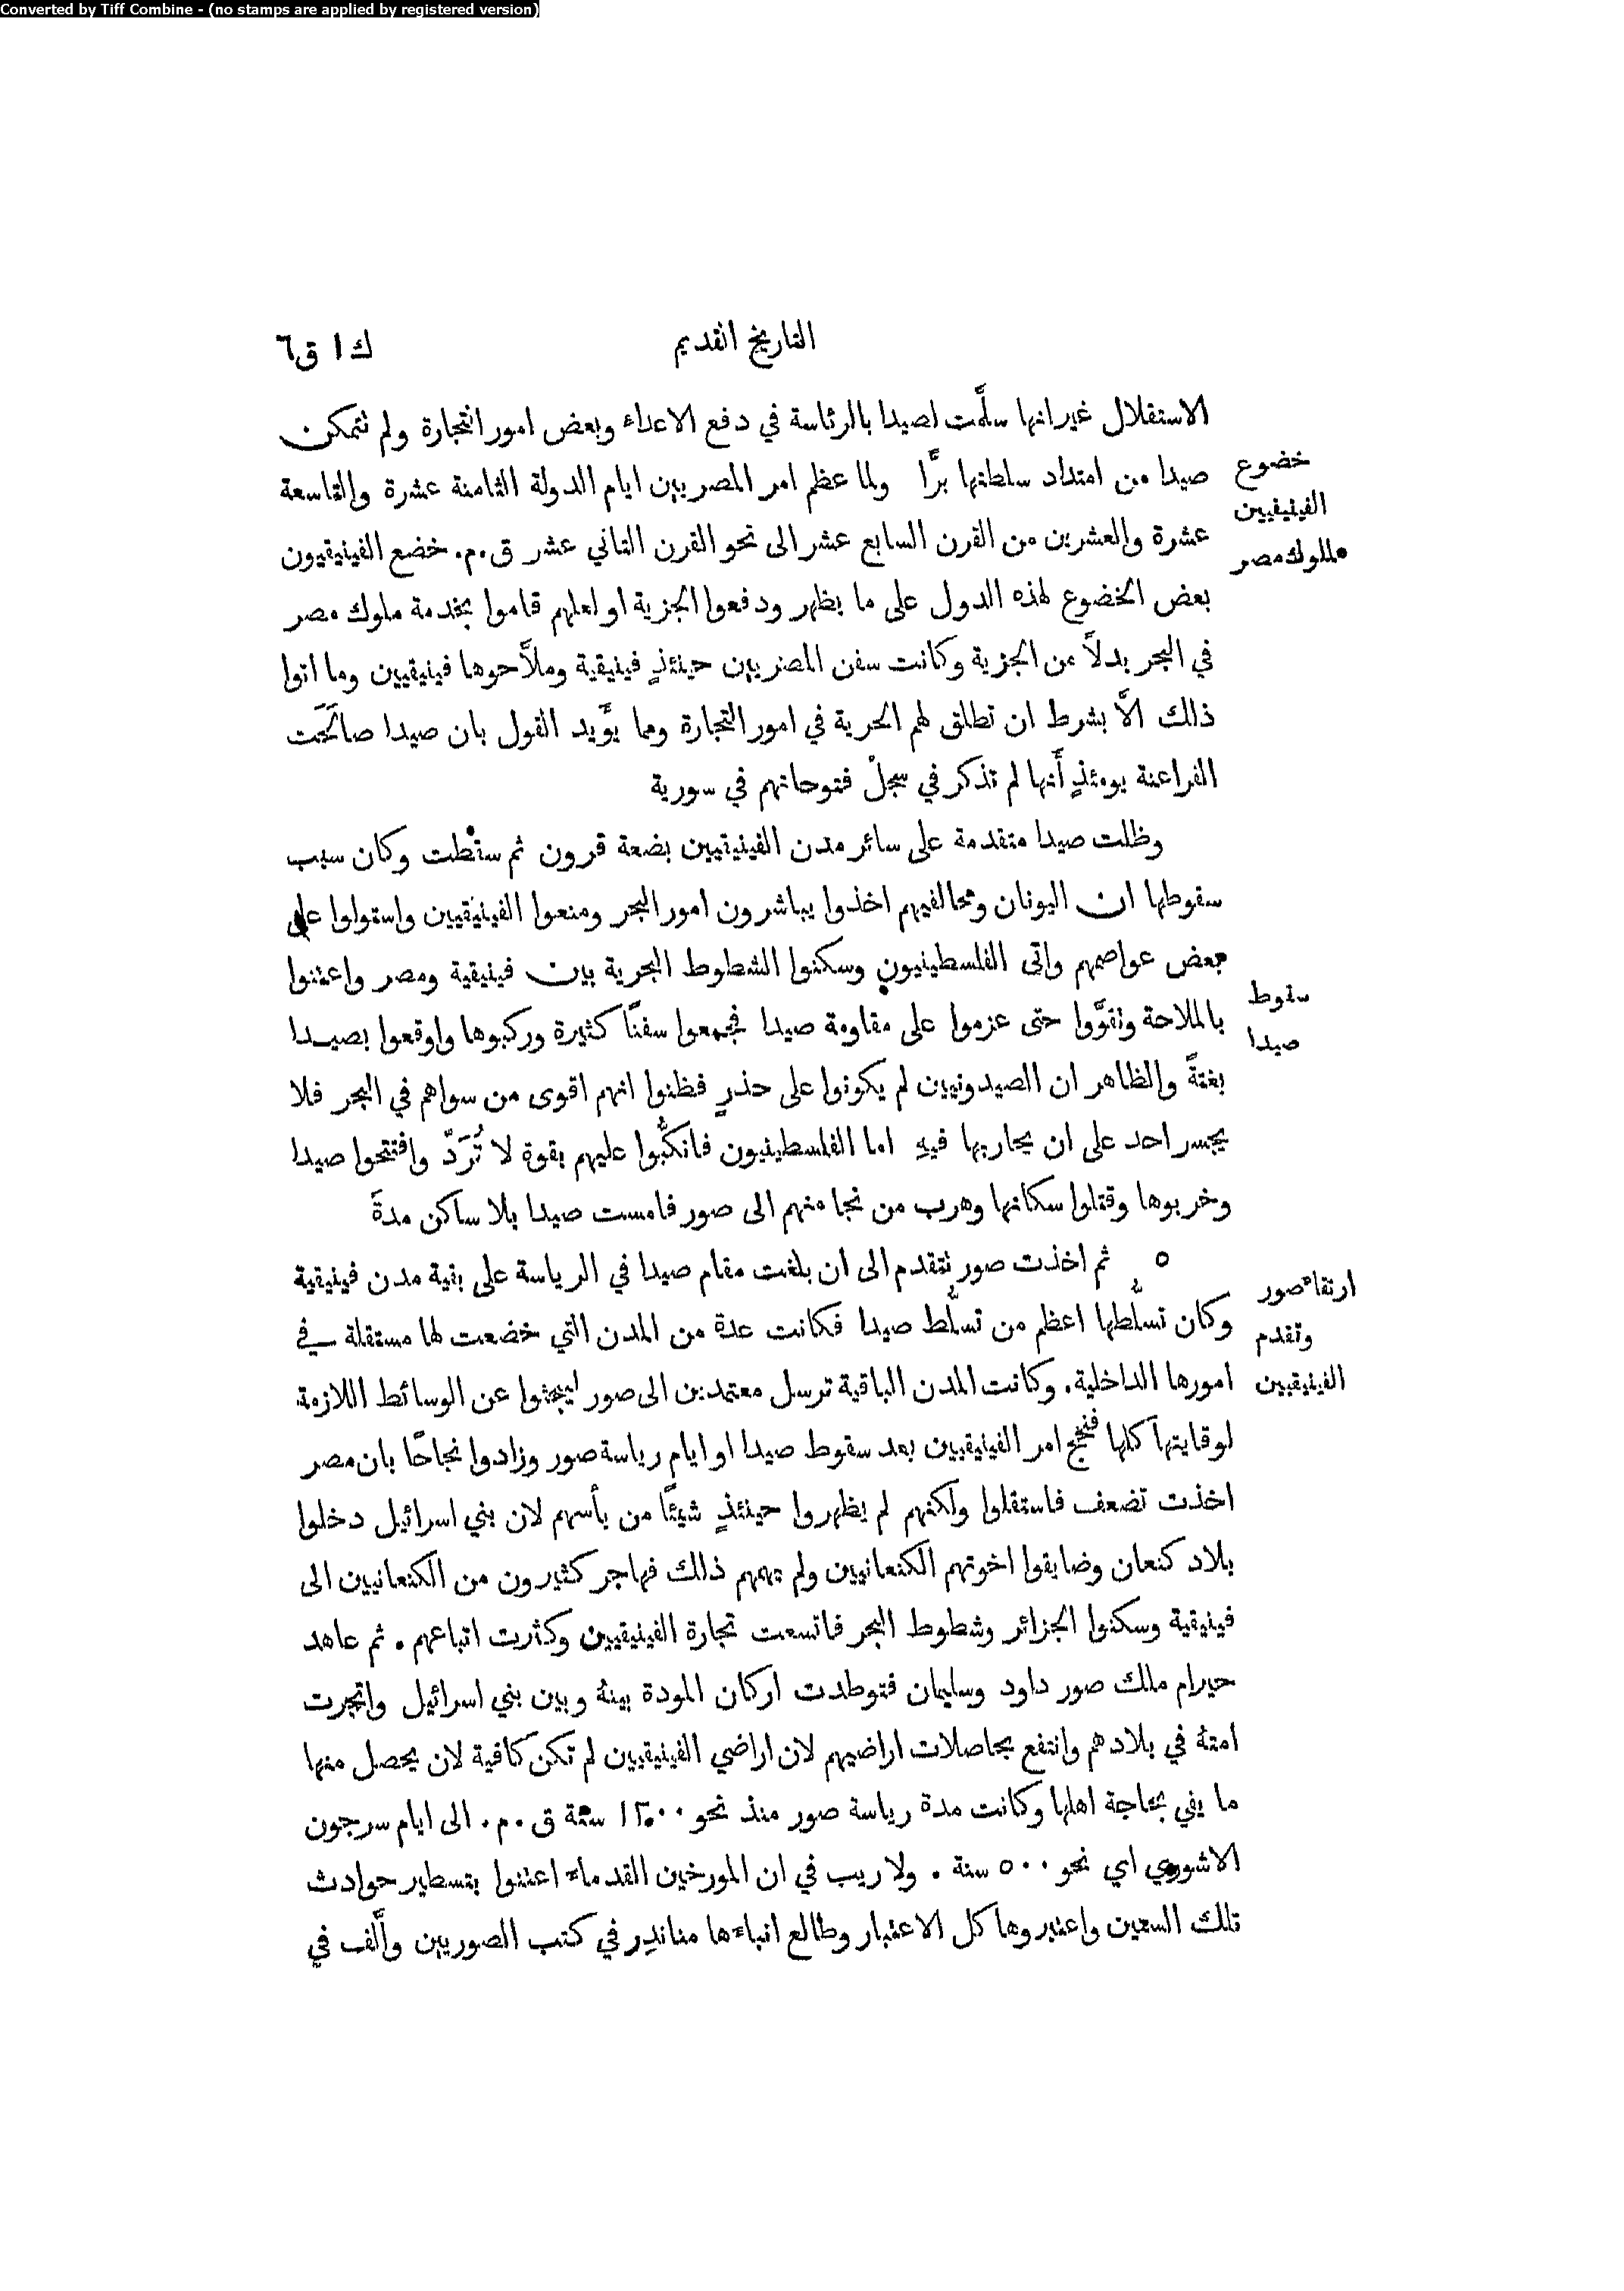 Converted by Tiff Combine - (no stamps are applied by registered version)
التاريخ القديم
ك ١ ق ٦
الاستقلال غير انها سلَّمت لصيدا بالرئاسة في دفع الاعداء وبعض امور التجارة ولم نتمكن
صيدا من امتداد سلطتها برًّا ولما عظم امر المصريين ايام الدولة الثامنة عشرة والتاسعة
عشرة والعشرين من القرن السابع عشر الى نحو القرن الثاني عشر ق.م. خضع الفينيقيون
بعض الخضوع لهذه الدول على ما يظهر ودفعوا الجزية او لعلهم قاموا بخدمة ملوك مصر
في البحر بدلاً من الجزية وكانت سفن المصريين حينئذٍ فينيقية وملاَّحوها فينيقيين وما اتوا
ذلك الاَّ بشرط ان تطلق لهم الحرية في امور التجارة ومما يوَّيد القول بان صيدا صالحَت
الفراعنة يومئذٍ أنها لم تذكر في سجلّ فتوحاتهم في سورية
خضوع
الفينيقيين
لملوك مصر
وظلت صيدا متقدمة على سائر مدن الفينيقيين بضعة قرون ثم سقطت وكان سبب
سقوطها ان اليونان ومحالفيهم اخذوا يباشرون امور البحر ومنعوا الفينيقيين واستولوا على
بعض عواصمهم واتى الفلسطينيون وسكنوا الشطوط البحرية بين فينيقية ومصر واعتنوا
بالملاحة وتقوَّوا حتى عزموا على مقاومة صيدا فجمعوا سفنًا كثيرة وركبوها واوقعوا بصيدا
بغتةً والظاهر ان الصيدونيين لم يكونوا على حذرٍ فظنوا انهم اقوى من سواهم في البحر فلا
يجسر احد على ان يحاربها فيهِ اما الفلسطينيون فانكبُّوا عليهم بقوة لا تُرَدّ وافتتحوا صيدا
وخربوها وقتلوا سكانها وهرب من نجا منهم الى صور فامست صيدا بلا ساكن مدةً
سقوط
صيدا
٥ ثم اخذت صور نتقدم الى ان بلغت مقام صيدا في الرياسة على بقية مدن فينيقية
وكان تسلُّطها اعظم من تسلُّط صيدا فكانت عدة من المدن التي خضعت لها مستقلة في
امورها الداخلية. وكانت المدن الباقية ترسل معتمدين الى صور ليبحثوا عن الوسائط اللازمة
لوقايتها كلها فنجح امر الفينيقيين بعد سقوط صيدا او ايام رياسة صور وزادوا نجاحًا بان مصر
اخذت تضعف فاستقلوا ولكنهم لم يظهروا حينئذٍ شيئًا من بأسهم لان بني اسرائيل دخلوا
بلاد كنعان وضايقوا اخوتهم الكنعانيين ولم يهمهم ذلك فهاجر كثيرون من الكنعانيين الى
فينيقية وسكنوا الجزائر وشطوط البحر فاتسعت تجارة الفينيقيين وكثرت اتباعهم. ثم عاهد
حيرام ملك صور داود وسليمان فتوطدت اركان المودة بينهُ وبين بني اسرائيل واتجرت
امتهُ في بلادهم وانتفع بحاصلات اراضيهم لان اراضي الفينيقيين لم تكن كافية لان يحصل منها
ما يفي بحاجة اهلها وكانت مدة رياسة صور منذ نحو ١٢٠٠ سنة ق.م. الى ايام سرجون
الاشوري اي نحو ٥٠٠ سنة. ولا ريب في ان المورخين القدماء اعتنوا بتسطير حوادث
تلك السنين واعتبروها كل الاعتبار وطالع انباءها مناندر في كتب الصوريين وألَّف في
ارتقاء صور
وتقدم
الفينيقيين